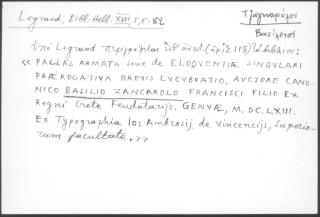 Legrand, Bibl. Hell. XVII, 5, σ. 82
Τζαγκαρόλος
Βασίλειος
Ὑπὸ Legrand περιγράφεται (ἀριθ. 118) βιβλίον:
« PALLAS ARMATA siue de ELOQVENTIÆ SINGVLARI
PRÆROGATIVA BREVIS LVCVBRATIO, AVCTORE CANO-
NICO BASILIO ZANCAROLO FRANCISCI FILIO EX
Regni Crete Feudatarijs, GENVÆ, M, DC, LXIII.
Ex Typographia Io: Ambrosij de Vincencijs, Superio-
rum facultate. »